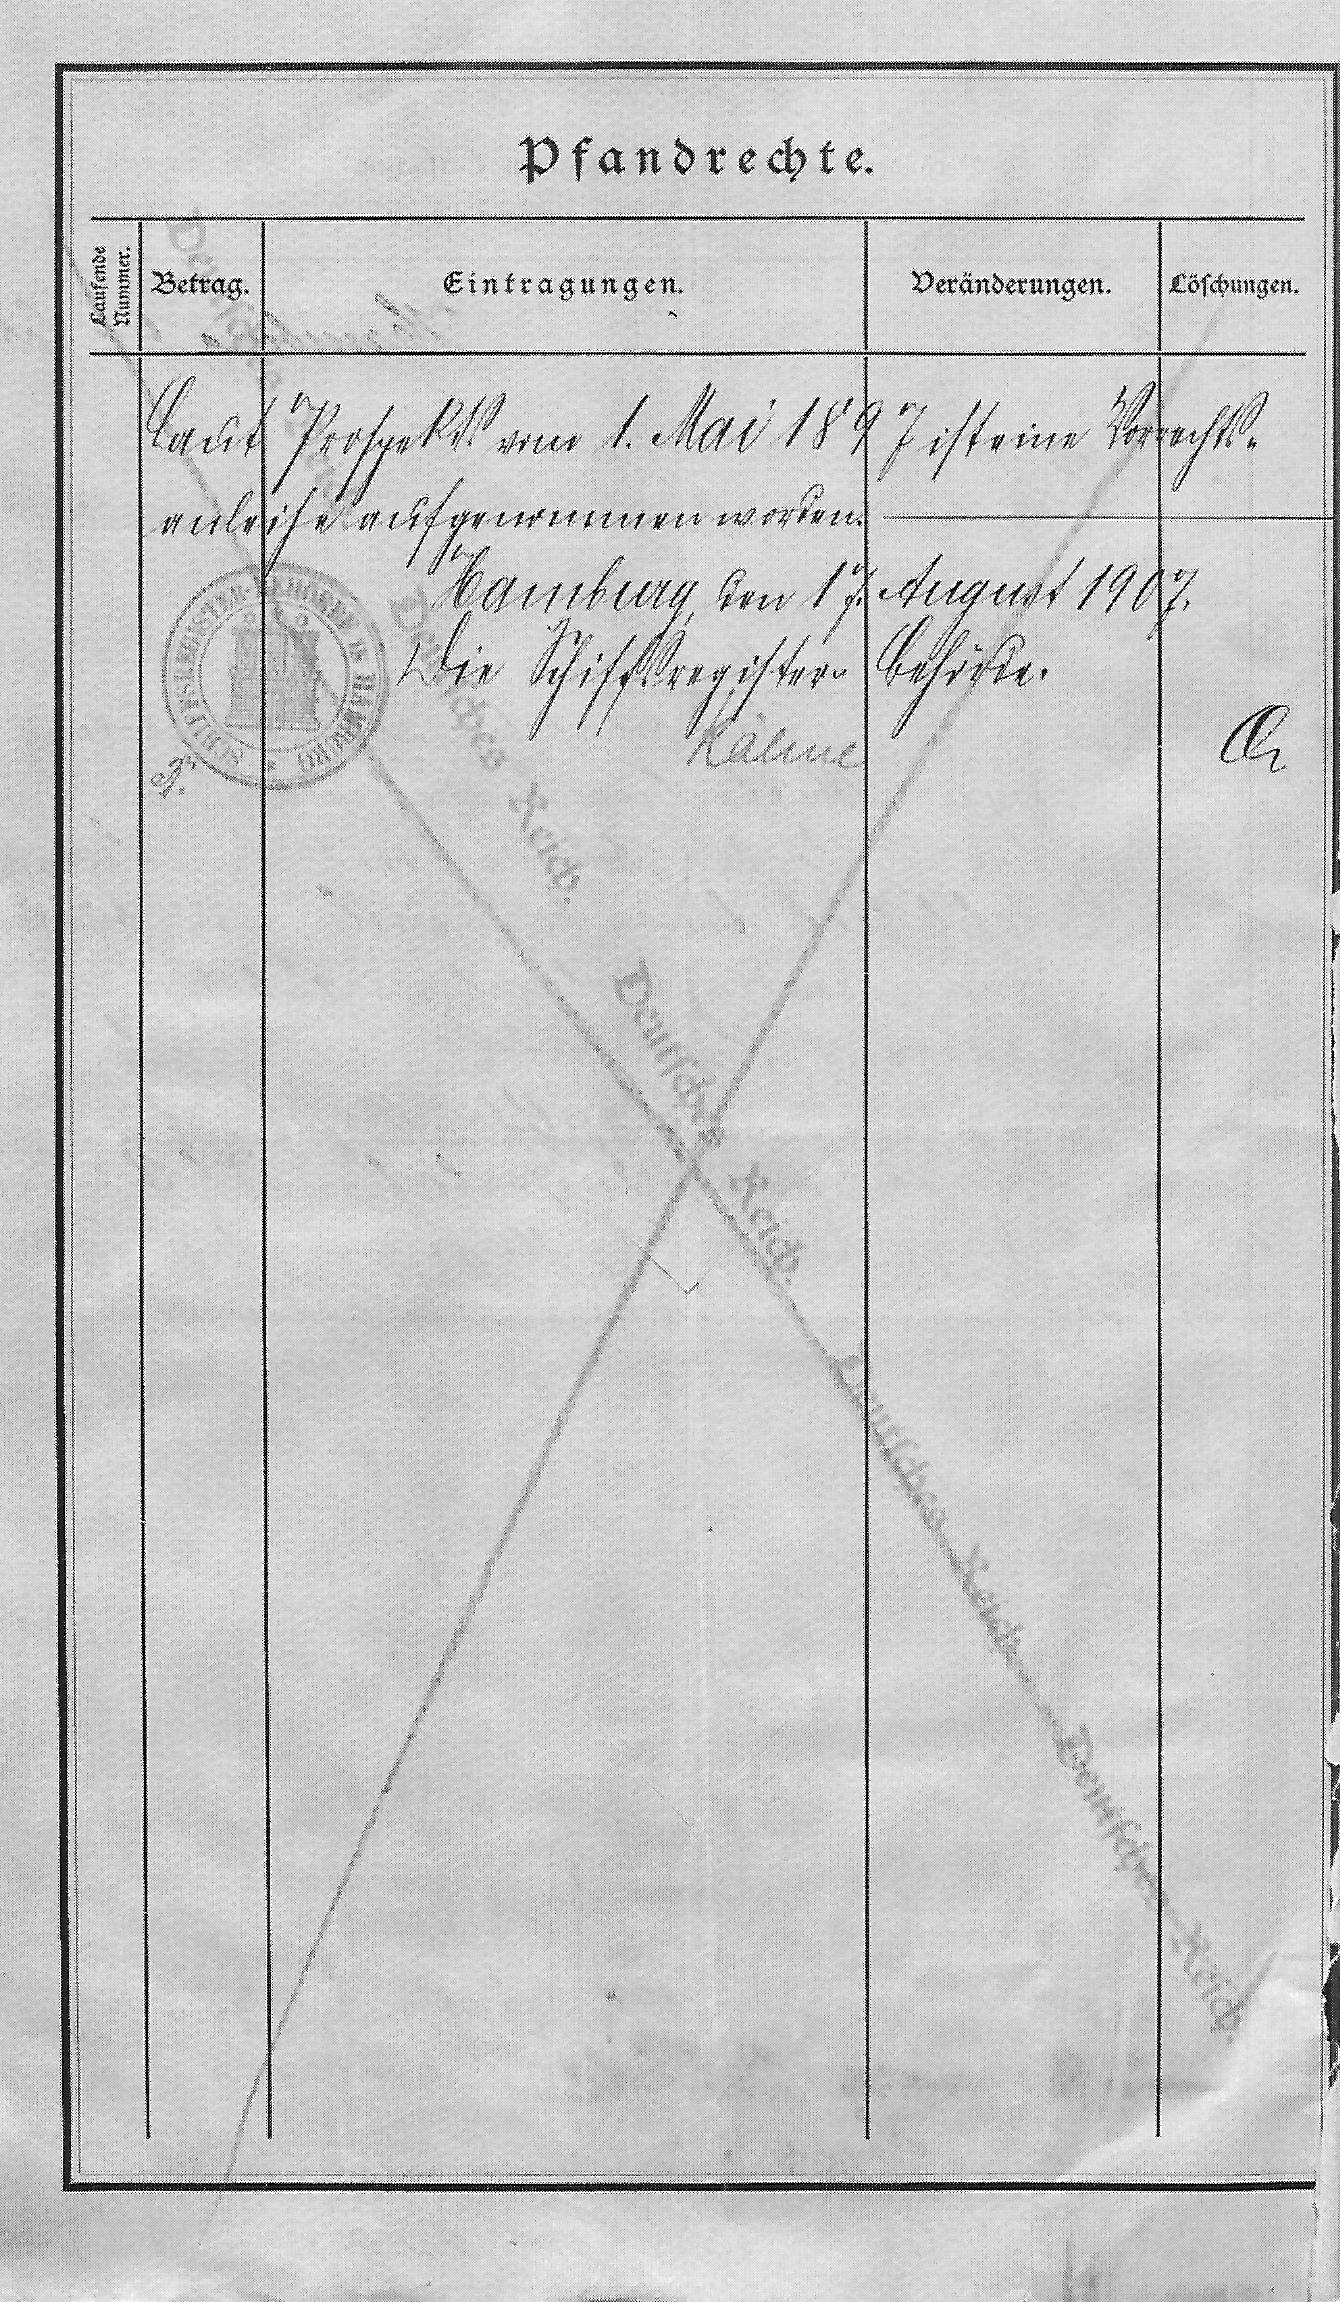 Pfandrechte.
Laufende
Nummer.
Betrag.
Eintragungen.
Veränderungen.
Löschungen.
Laut Prospekts vom 1. Mai 1897 ist eine Vorrechts-
anleihe aufgenommen worden.
Hamburg, den 17. August 1907.
Die Schiffsregister-Behörde.
SCHIFFSREGISTER-BEHÖRDE IN HAMBURG
Deutsches Reich.
Deutsches Reich.
Deutsches Reich.
Deutsches Reich.